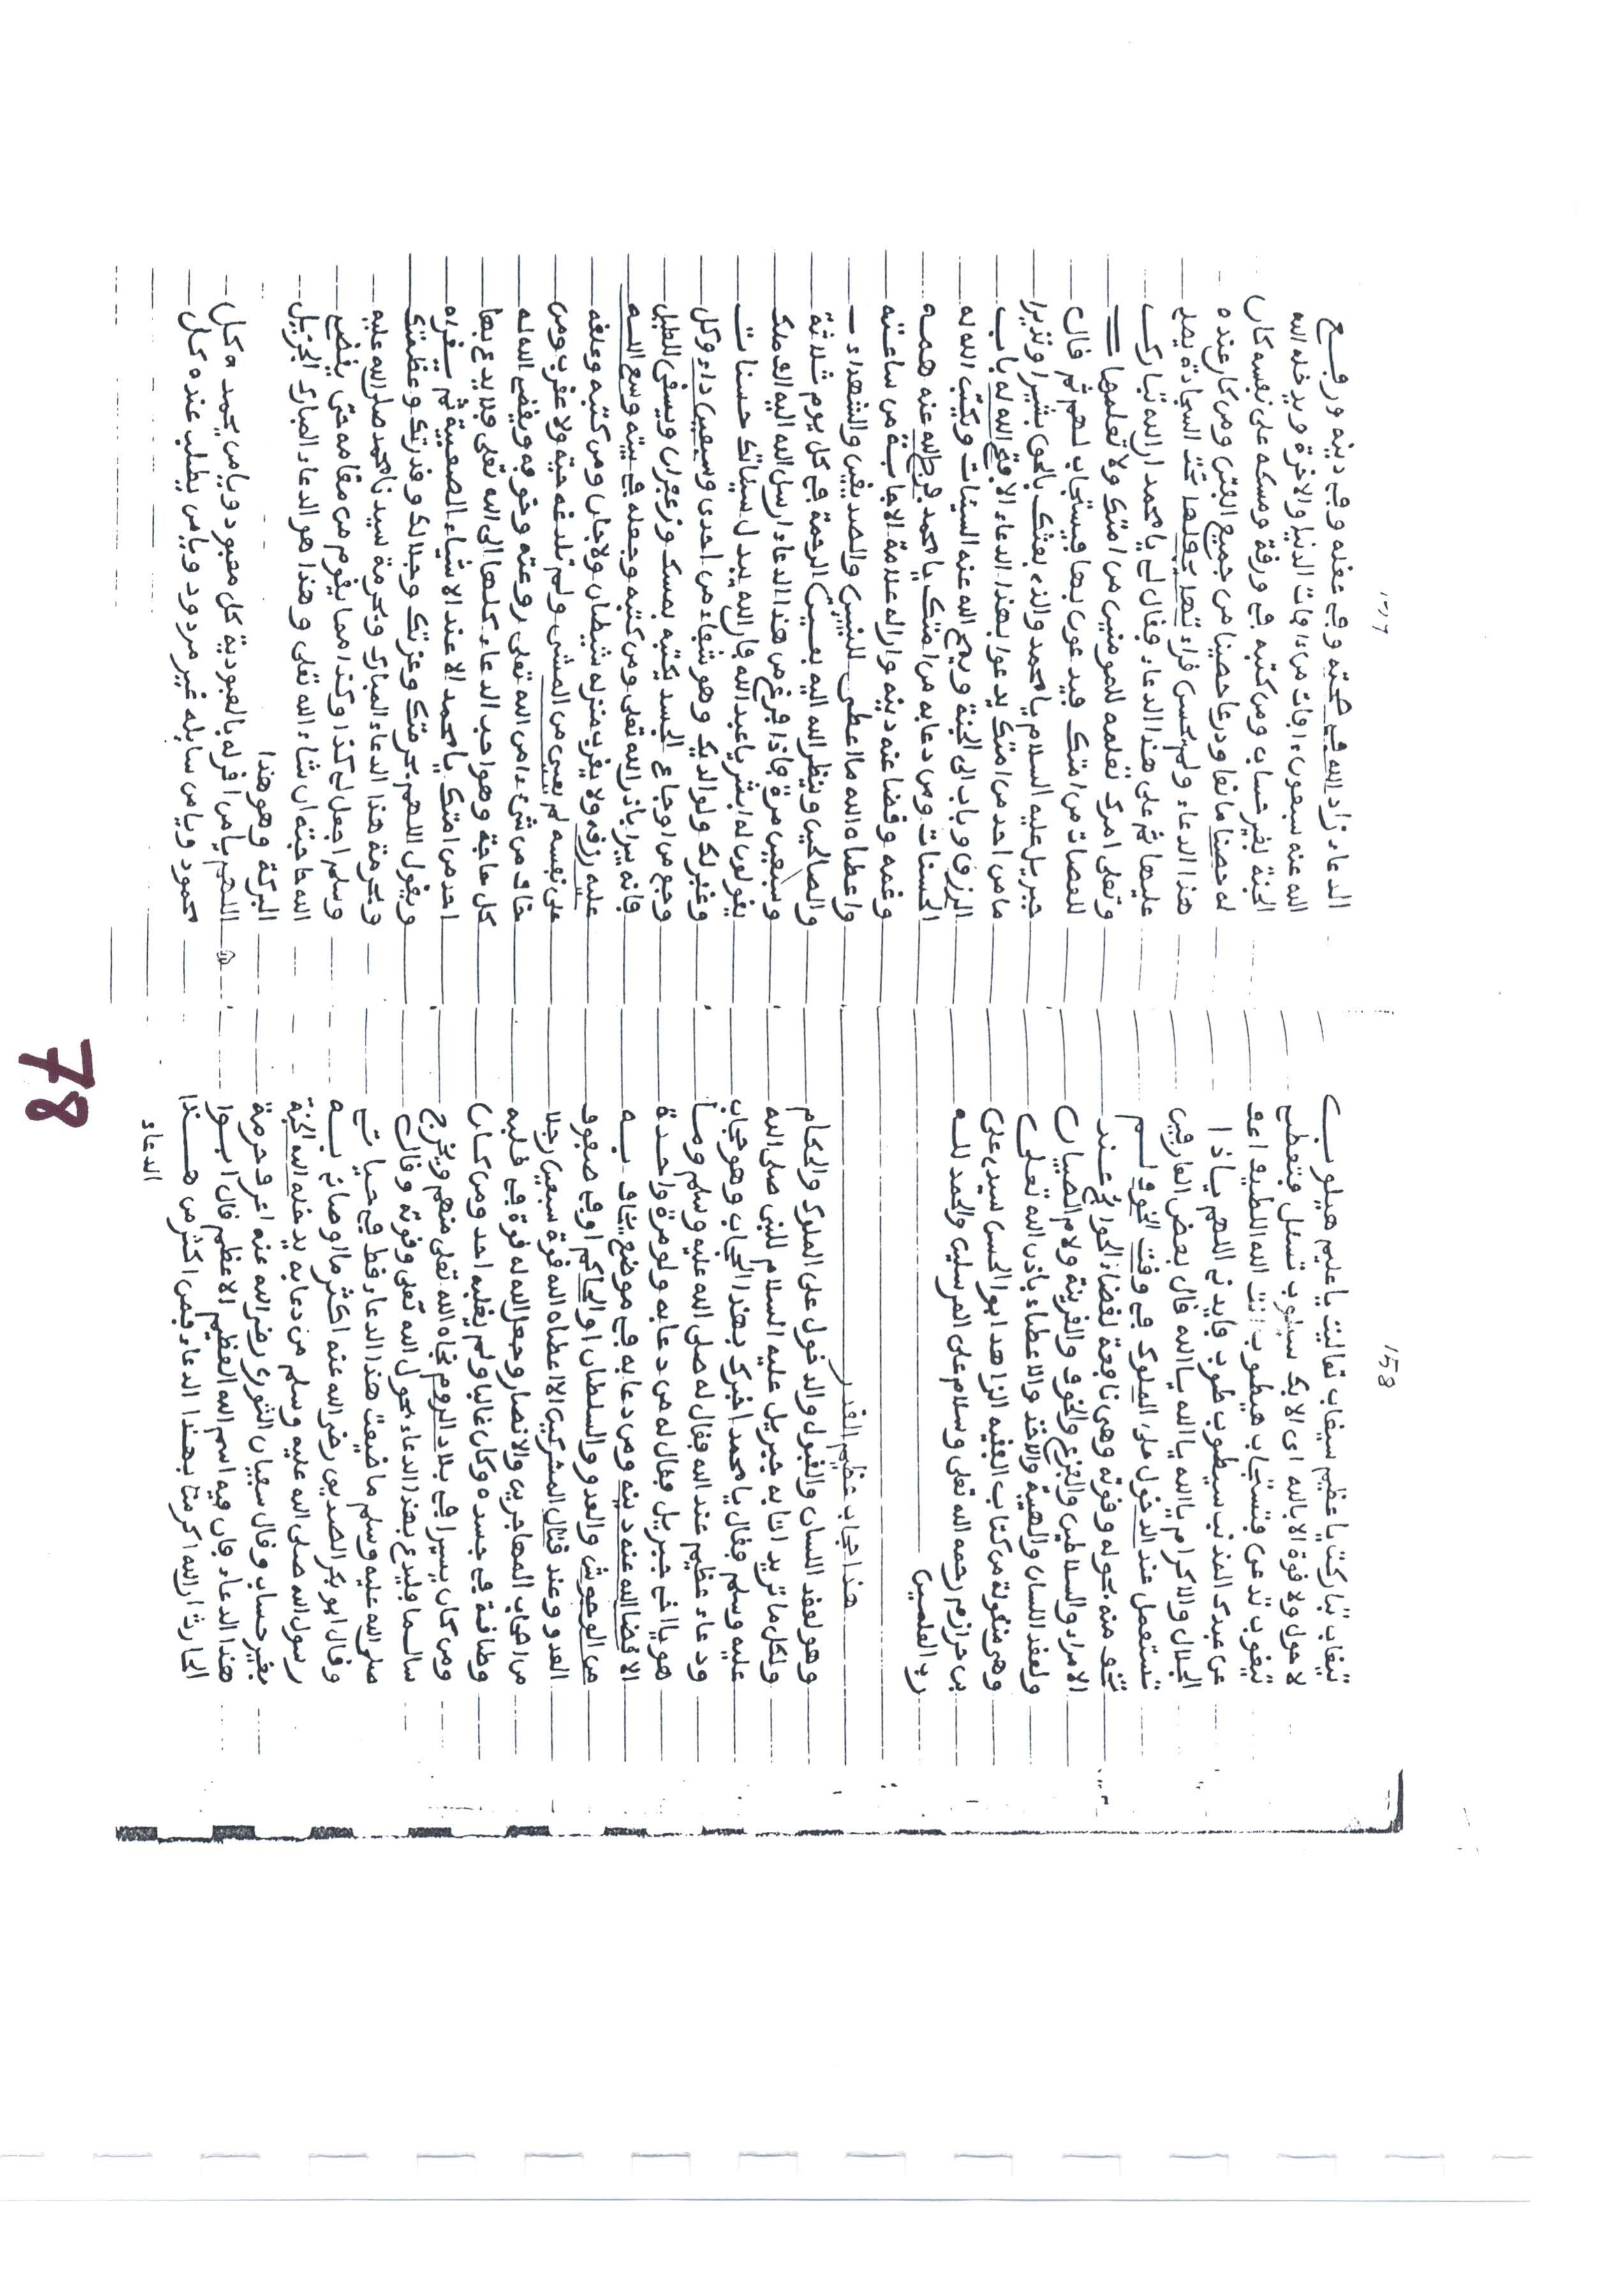 158
تيغاب تباركت يا عظيم سيغاب تعاليت يا عليم هيلوب
لا حول ولا قوة الا بالله اى الابك سيلوب تسئل فتعطى
تيغوب تدعى فتستجاب هيطوب انت الله اللطيف اعف
عن عبدك المذنب سيطوب طوب فايدنى اللهم ياذا
الجلال والاكرام يا الله يا الله يا الله فال بعض العارفين
تستعمل عند الدخول على الملوك في وقت الخوف لم
تخف منه بحوله وقوته وهى نافعة لقضاء الحوائج عند
الامراء والسلاطين والفزع والخوف والقرينة ولام الصبيان
ولعقد اللسان والهيبة والاخذ والاعطاء باذن الله تعلى
وهى منقولة من كتاب الفقيه الزاهد ابو الحسن سيدى على
بن حرازم رحمه الله تعلى وسلام على المرسلين والحمد لله
رب العلمين
هذا حجاب عظيم القدر
وهو لعقد اللسان والقبول والدخول على الملوك والحكام
ولكل ما تريد اتا به جبريل عليه السلام للنبى صلى الله
عليه وسلم فقال يا محمد اخبرك بهذا الحجاب وهو حجاب
ودعاء عظيم عند الله فقال له صلى الله عليه وسلم وما
هو يا اخى جبريل فقال له من دعا به ولو مرة واحدة
الا قضا الله عنه دينه ومن دعا به في موضع يخاف به
من الوحوش والعدو والسلطان او الحاكم او في صفوف
العدو وعند قتال المشركين الا اعطاه الله قوة سبعين رجلا
من اصحاب المهاجرين والانصار وجعل الله له قوة في قلبه
وطاقة في جسده وكان غالبا ولم يغلبه احد ومن كان
ومن كان يسيرا في بلاد الروم نجاه الله تعلى منهم ويخرج
سالما فليدع بهذا الدعاء بحول الله تعلى وقوته وقال
صلى الله عليه وسلم ما ضيعت هذا الدعاء قط في حياتى
وقال ابو بكر الصديق رضى الله عنه اكثر ما اوصانى به
رسول الله صلى الله عليه وسلم من دعا به يدخله الله الجنة
بغير حساب وقال سفيان الثورى رضى الله عنه اعرف حرمة
هذا الدعاء فان فيه اسم الله العظيم الاعظم قال ابوا
الحارث ان الله اكرمنا بهذا الدعاء فمن اكثر من هذا
الدعاء
الدعاء زاد الله في صحته وفي عقله وفي دينه ورفع
الله عنه سبعون ءافات من ءافات الدنيا والاخرة ويدخله الله
الجنة بغير حساب ومن كتبه في ورقة ومسكه على نفسه كان
له حصنا مانعا ودرعا حصينا من جميع الفتن ومن كان عنده
هذا الدعاء ولم يحسن قراءتها يجعلها تحت السجادة يصلى
عليها ثم على هذا الدعاء فقال لى يا محمد ان الله تبارك
وتعلى امرك تعلمه للمومنين من امتك ولا تعلمها
للعصات من امتك فيدعون بها فيستجاب لهم ثم قال
جبريل عليه السلام يا محمد والذى بعثك بالحق بشيرا ونذيرا
ما من احد من امتك يدعوا بهذا الدعاء الا فتح الله له باب
الرزق وباب الى الجنة ويمح الله عنه السيئات ويكتب الله له
الحسنات ومن دعا به من امتك يا محمد فرج الله عنه همه
وغمه وقضا عنه دينه وارا له علامة الاجابة من ساعته
واعطاه الله ما اعطى للنبيين والصديقين والشهداء
والصالحين وينظر الله اليه بعين الرحمة في كل يوم ثلاثة
وسبعين مرة فاذا فرغ من هذا الدعاء ارسل الله اليه الف ملك
يقولون له ابشر يا عبد الله فان الله يبدل سيئاتك حسنات
وغفر لك ولوالديك وهو شفاء من احدى وسبعين داء وكل
وجع من اوجاع الجسد يكتبه بمسك وزعفران ويسقى للعليل
فانه يبرا باذن الله تعلى ومن كتبه وجعله في بيته وسع الله
عليه رزقه ولا يقرب منزله شيطان ولا جان ومن كتبه وعلقه
على نفسه لم يعيى من المشى ولم تلدغه حية ولا عقرب ومن
خاف من شىء امن الله تعلى روعته وخوفه ويقضى الله له
كل حاجة وهو احب الدعاء كلها الى الله تعلى فلا يدع بها
احد من امتك يا محمد الا عند الاشياء الصعبية ثم يقراه
ويقول اللهم بحرمتك وعزتك وجلالك وقدرتك وعظمتك
وبحرمة هذا الدعاء المبارك وبحرمة سيدنا محمد صلى الله عليه
وسلم اجعل لى كذا وكذا مما يقوم من مقامه حتى يقضى
الله حاجته ان شاء الله تعلى وهذا هو الدعاء المبارك الجزيل
البركة وهو هذا
اللهم يا من اقر له بالعبودية كل معبود ويا من يحمده كل
محمود ويا من سايله غير مردود ويا من يطلب عنده كل
78